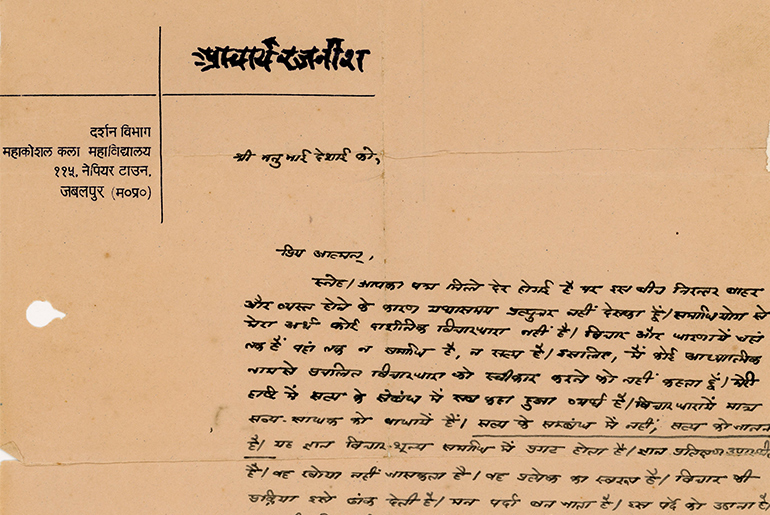 प्राचार्य रजनीश
दर्शन विभाग
महाकोशल कला महाविद्यालय
११५, नेपियर टाउन,
जबलपुर (म०प्र०)
श्री मनुभाई देसाई को,
प्रिय आत्मन्,
स्नेह। आपका पत्र मिले देर होगई है पर इस बीच निरन्तर बाहर
और व्यस्त होने के कारण यथासमय प्रत्युत्तर नहीं देसका हूँ। समाधियोग से
मेरा अर्थ कोई दार्शनिक विचारधारा नहीं है। विचार और धारणायें जहां
तक हैं वहां तक न समाधि है, न सत्य है। इसलिए, मैं कोई आध्यात्मिक
नामसे प्रचलित विचारधारा को स्वीकार करने को नहीं कहता हूँ। मेरी
दृष्टि में सत्य के संबंध में सब कहा हुआ व्यर्थ है। विचारधारायें मात्र
सत्य-साधक को बाधायें हैं। सत्य के सम्बंध में नहीं, सत्य को जानना
है। यह ज्ञान विचार-शून्य समाधि में प्रगट होता है। ज्ञान प्रतिक्षण उपस्थित
है। वह खोया नहीं जासकता है। वह प्रत्येक का स्वरूप है। विचार की
प्रक्रिया उसे ढांक देती है। मन पर्दा बन जाता है। इस पर्दे को उठाना है।